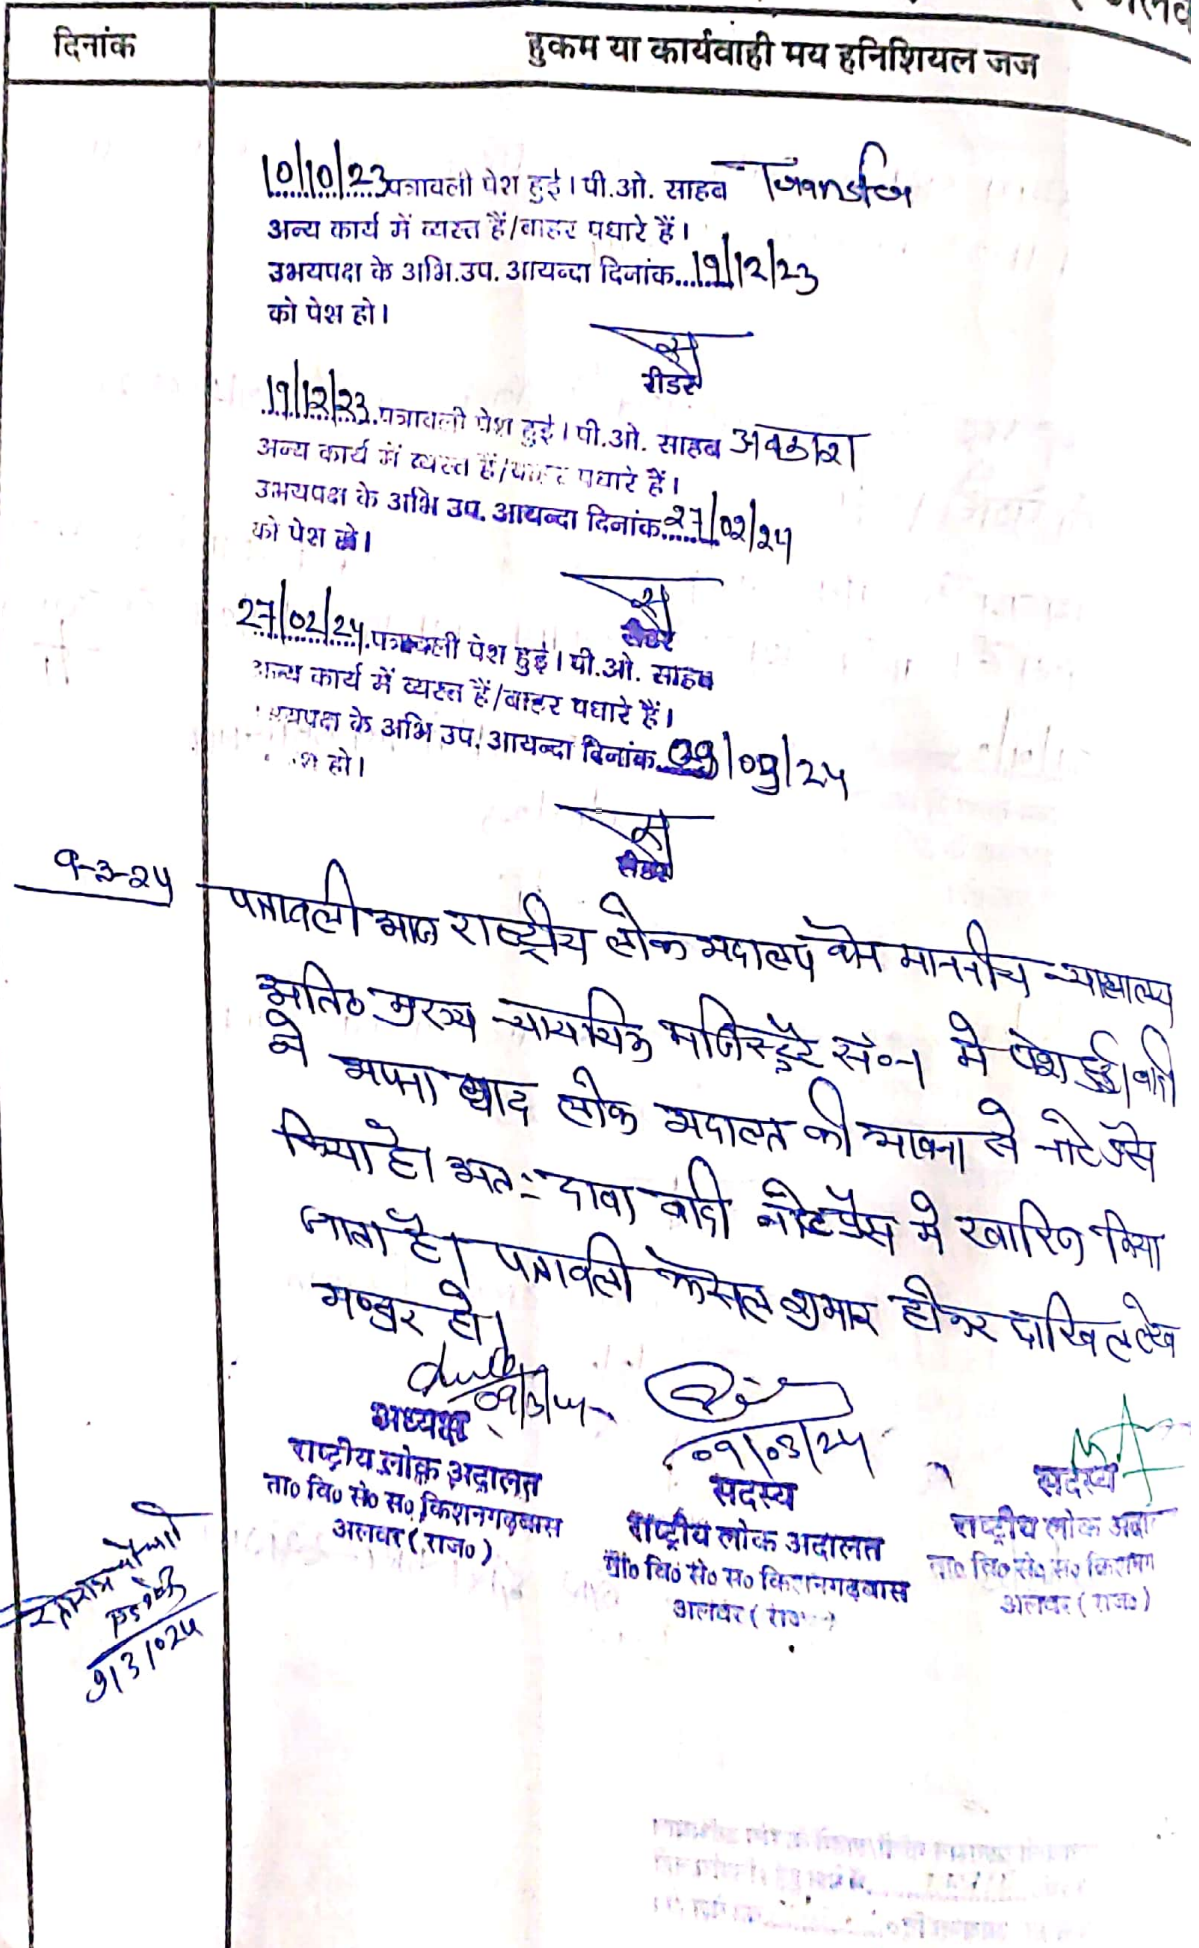 दिनांक
हुकम या कार्यवाही मय इनिशियल जज
10/10/23 पत्रावली पेश हुई। पी.ओ. साहब
अन्य कार्य में व्यस्त हैं/बाहर पधारे हैं।
उभयपक्ष के अभि.उप. आयन्दा दिनांक...19/12/23
को पेश हो।
रीडर
19/12/23 पत्रावली पेश हुई। पी.ओ. साहब अवकाश
अन्य कार्य में व्यस्त हैं/बाहर पधारे हैं।
उभयपक्ष के अभि उप. आयन्दा दिनांक 27/02/24
को पेश हो।
रीडर
27/02/24 पत्रावली पेश हुई। पी.ओ. साहब
अन्य कार्य में व्यस्त हैं/बाहर पधारे हैं।
भयपक्ष के अभि उप. आयन्दा दिनांक 09/03/24
श हो।
रीडर
9-3-24
पत्रावली आज राष्ट्रीय लोक अदालत माननीय न्यायालय
अति० मुख्य न्यायिक मजिस्ट्रेट सं०-1 मे पेश हुई। वादी
ने अपना वाद लोक अदालत की भावना से नोटप्रेस
किया है। अतः दावा वादी नोटप्रेस मे खारिज किया
जाता है। पत्रावली फैसल शुमार होकर दाखिल लेख
भण्डार हो।
09/3/24
09/03/24
अध्यक्ष
राष्ट्रीय लोक अदालत
ता० वि० से० स० किशनगढ़बास
अलवर (राज०)
सदस्य
राष्ट्रीय लोक अदालत
ता० वि० से० स० किशनगढ़बास
अलवर (राज०)
सदस्य
राष्ट्रीय लोक अदा
ता० वि० से० स० किशनग
अलवर (राज०)
9/3/024